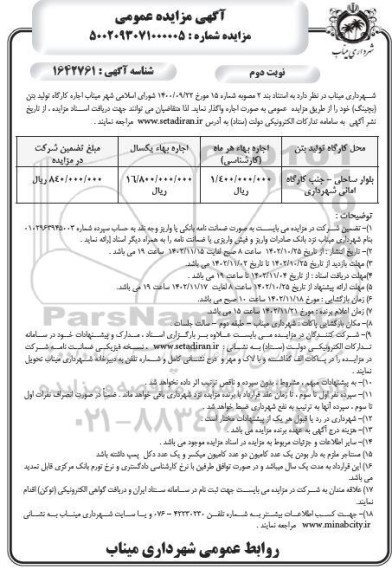 آگهی مزایده عمومی
مزایده شماره : ۵۰۰۲۰۹۳۰۷۱۰۰۰۰۰۵
شهرداری میناب
نوبت دوم
شناسه آگهی : ۱۶۴۲۷۶۱
شهرداری میناب در نظر دارد به استناد بند ۲ مصوبه شماره ۱۵ مورخ ۱۴۰۰/۰۹/۲۲ شورای اسلامی شهر میناب اجاره کارگاه تولید بتن
(بچینگ) خود را از طریق مزایده عمومی به صورت اجاره واگذار نماید. لذا متقاضیان می توانند جهت دریافت اسناد مزایده ، از تاریخ
نشر آگهی به سامانه تدارکات الکترونیکی دولت (ستاد) به آدرس www.setadiran.ir مراجعه نمایند .
محل کارگاه تولید بتن
اجاره بهاء هر ماه (کارشناسی)
اجاره بهاء یکسال
مبلغ تضمین شرکت در مزایده
بلوار ساحلی - جنب کارگاه امانی شهرداری
۱/۴۰۰/۰۰۰/۰۰۰ ریال
۱۶/۸۰۰/۰۰۰/۰۰۰ ریال
۸۴۰/۰۰۰/۰۰۰ ریال
توضیحات :
۱)- تضمین شرکت در مزایده می بایست به صورت ضمانت نامه بانکی یا واریز وجه نقد به حساب سپرده شماره
بنام شهرداری میناب نزد بانک صادرات واریز و فیش واریزی یا ضمانت نامه را به همراه دیگر اسناد ارائه نماید .
۲)- تاریخ انتشار : از تاریخ ۱۴۰۲/۱۰/۲۵ ساعت ۸ صبح لغایت ساعت ۱۹ می باشد .
۳)- مهلت بازدید از تاریخ ۱۴۰۲/۱۰/۲۵ تا تاریخ ۱۴۰۲/۱۱/۰۳ می باشد.
۴)- مهلت دریافت اسناد : از تاریخ تا ساعت ۱۹ می باشد .
۵)- مهلت ارائه پیشنهاد از تاریخ ۱۴۰۲/۱۰/۲۵ ساعت ۸ لغایت ۱۴۰۲/۱۱/۱۷ ساعت ۱۹ می باشد.
۶) زمان بازگشایی : مورخ ۱۴۰۲/۱۱/۱۸ ساعت ۱۰ صبح می باشد.
۷) زمان اعلام برنده : مورخ ۱۴۰۲/۱۱/۲۱ ساعت ۱۵ می باشد
۸)- مکان بازگشایی پاکات : شهرداری میناب - طبقه دوم - سالن جلسات
۹)- شرکت کنندگان در مزایده می بایست علاوه بر بارگزاری اسناد ، مدارک و پیشنهادات خود در سامانه
تدارکات الکترونیکی دولت (ستاد) به نشانی : www.setadiran.ir ، نسخه فیزیکی ضمانت نامه شرکت
در مزایده را در پاکات الف گذاشته و با لاک و مهر و درج نشانی کامل و شماره تلفن به دبیرخانه شهرداری میناب تحویل
نمایند .
۱۰)- به پیشنهادات مبهم ، مشروط ، بدون سپرده و ناقص ترتیب اثر داده نخواهد شد .
۱۱)- سپرده نفر اول تا سوم ، تا زمان عقد قرارداد با برنده مزایده نزد شهرداری باقی خواهد ماند. ضمناً در صورت انصراف نفرات اول
تا سوم ، سپرده آنها به ترتیب به نفع شهرداری ضبط خواهد شد .
۱۲)- شهرداری در رد یا قبول هر یک از پیشنهادات مختار است
۱۳)- هزینه درج آگهی به عهده برنده مزایده می باشد .
۱۴)- سایر اطلاعات و جزئیات مربوط به مزایده در اسناد مزایده موجود می باشد .
۱۵) مستاجر ملزم به دار بودن یک عدد کامیون دو عدد کامیون میکسر و یک عدد دکل پمپ داشته باشد
۱۶) این قرارداد به مدت یک سال میباشد و در صورت توافق طرفین با نرخ کارشناسی دادگستری و نرخ تورم بانک مرکزی قابل تمدید
می باشد.
۱۷) علاقه مندان به شرکت در مزایده می بایست جهت ثبت نام در سامانه ستاد ایران و دریافت گواهی الکترونیکی (توکن) اقدام
نمایند.
۱۸)- جهت کسب اطلاعات بیشتر به شماره تلفن ۴۲۲۳۰۲۳۰ - ۰۷۶ و یا سایت شهرداری میناب به نشانی
www.minabcity.ir مراجعه نمایند .
روابط عمومی شهرداری میناب